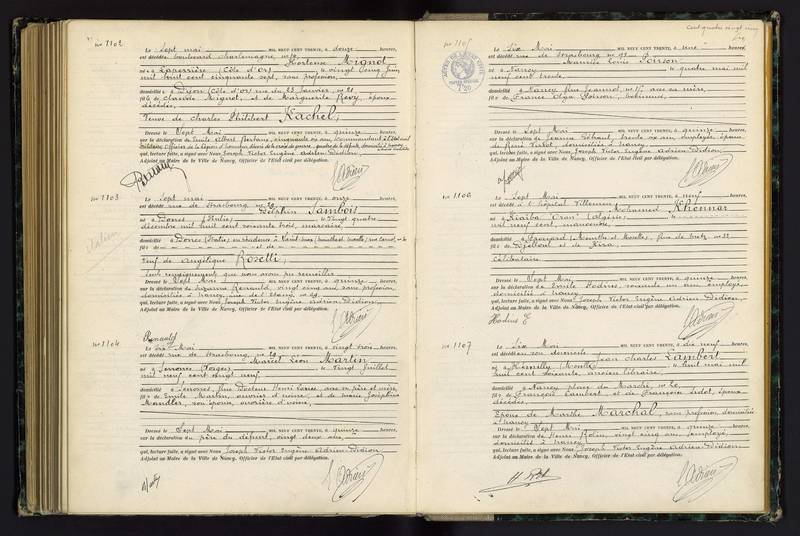 N° 1102
Le Sept mai MIL NEUF CENT TRENTE, à douze heures,
est décédée boulevard Charlemagne, n° Hortense Mignot
née à Laperrière (Côte d'Or) le vingt Juin
mil huit cent cinquante sept, sans profession,
domiciliée à Dijon (Côte d'or) rue du 23 Janvier, n° 21
fille de Claude Mignot, et de Marguerite Revy, époux
décédés,
Veuve de Charles Philibert Rachel;
Dressé le Sept Mai MIL NEUF CENT TRENTE, à quinze heures,
sur la déclaration de Emile Albert cinquante ans,
Officier de la Légion d'honneur décoré de la croix de guerre, domicilié à Nancy
qui, lecture faite, a signé avec Nous Joseph Victor Eugène Adrien Didion,
Adjoint au Maire de la Ville de Nancy, Officier de l'Etat civil par délégation.
N° 1103
italien
Le Sept mai MIL NEUF CENT TRENTE, à onze heures,
est décédé rue de Strasbourg n° 29 Delphin Sambois
né à Dones (Italie) le Vingt quatre
décembre mil huit cent soixante trois, mercaire,
domicilié à Dones (Italie) en résidence à
fils de et de
Veuf de Angélique Roselli;
Seuls renseignements que nous avons pu recueillir.
Dressé le Sept Mai MIL NEUF CENT TRENTE, à quinze heures,
sur la déclaration de Suzanne Renauld, vingt cinq ans, sans profession,
domiciliée à Nancy, rue de l'Etang, n° 49,
qui, lecture faite, a signé avec Nous Joseph Victor Eugène Adrien Didion,
Adjoint au Maire de la Ville de Nancy, Officier de l'Etat civil par délégation.
Renauld
N° 1104
Le Six Mai MIL NEUF CENT TRENTE, à vingt trois heures,
est décédé rue de Strasbourg, n° 29 Marcel Léon Martin
né à Senones (Vosges) le Vingt Juillet
mil neuf cent vingt neuf
domicilié à Senones, rue Docteur Henri avec ses père et mère,
fils de Emile Martin, ouvrier d'usine, et de Marie Joséphine
Mandler, son épouse, ouvrière d'usine,
Dressé le Sept Mai MIL NEUF CENT TRENTE, à quinze heures,
sur la déclaration du père du défunt, vingt deux ans,
qui, lecture faite, a signé avec Nous Joseph Victor Eugène Adrien Didion,
Adjoint au Maire de la Ville de Nancy, Officier de l'Etat civil par délégation.
Cent quatre vingt cinq
N° 1105
Le Six Mai MIL NEUF CENT TRENTE, à une heures,
est décédé rue de Strasbourg n° Maurice Louis Poirson
né à Nancy le quatre mai mil
neuf cent trente
domicilié à Nancy rue Jeannot, n° 17, avec sa mère,
fils de France Olga Poirson, bobineuse,
Dressé le Sept Mai MIL NEUF CENT TRENTE, à quinze heures,
sur la déclaration de Jeanne trente six ans, employée, épouse
de Henri domiciliée à Nancy
qui, lecture faite, a signé avec Nous Joseph Victor Eugène Adrien Didion,
Adjoint au Maire de la Ville de Nancy, Officier de l'Etat civil par délégation.
N° 1106
Le Sept Mai MIL NEUF CENT TRENTE, à neuf heures,
est décédé à l'hôpital Villemin Mohamed Khennar
né à Kiaiba "Oran" (Algérie) le
mil neuf cent, manoeuvre,
domicilié à Frouard (Meurthe et Moselle), rue de Metz n° 22
fils de Djelloul et de Kira
Célibataire
Dressé le Sept Mai MIL NEUF CENT TRENTE, à quinze heures,
sur la déclaration de Emile Hodius, soixante un ans, employé,
domicilié à Nancy
qui, lecture faite, a signé avec Nous Joseph Victor Eugène Adrien Didion,
Adjoint au Maire de la Ville de Nancy, Officier de l'Etat civil par délégation.
Hodius E
N° 1107
Le Six Mai MIL NEUF CENT TRENTE, à dix neuf heures,
est décédé en son domicile Jean Charles Lambert
né à Remilly (Moselle) le huit mai mil
huit cent soixante, ancien libraire,
domicilié à Nancy place du Marché, n° 20,
fils de François Lambert et de Françoise Didot, époux
décédés,
Epoux de Marthe Marchal, sans profession, domiciliée
à Nancy
Dressé le Sept Mai MIL NEUF CENT TRENTE, à quinze heures,
sur la déclaration de Henri Rolin, vingt cinq ans, employé,
domicilié à Nancy
qui, lecture faite, a signé avec Nous Joseph Victor Eugène Adrien Didion
Adjoint au Maire de la Ville de Nancy, Officier de l'Etat civil par délégation.